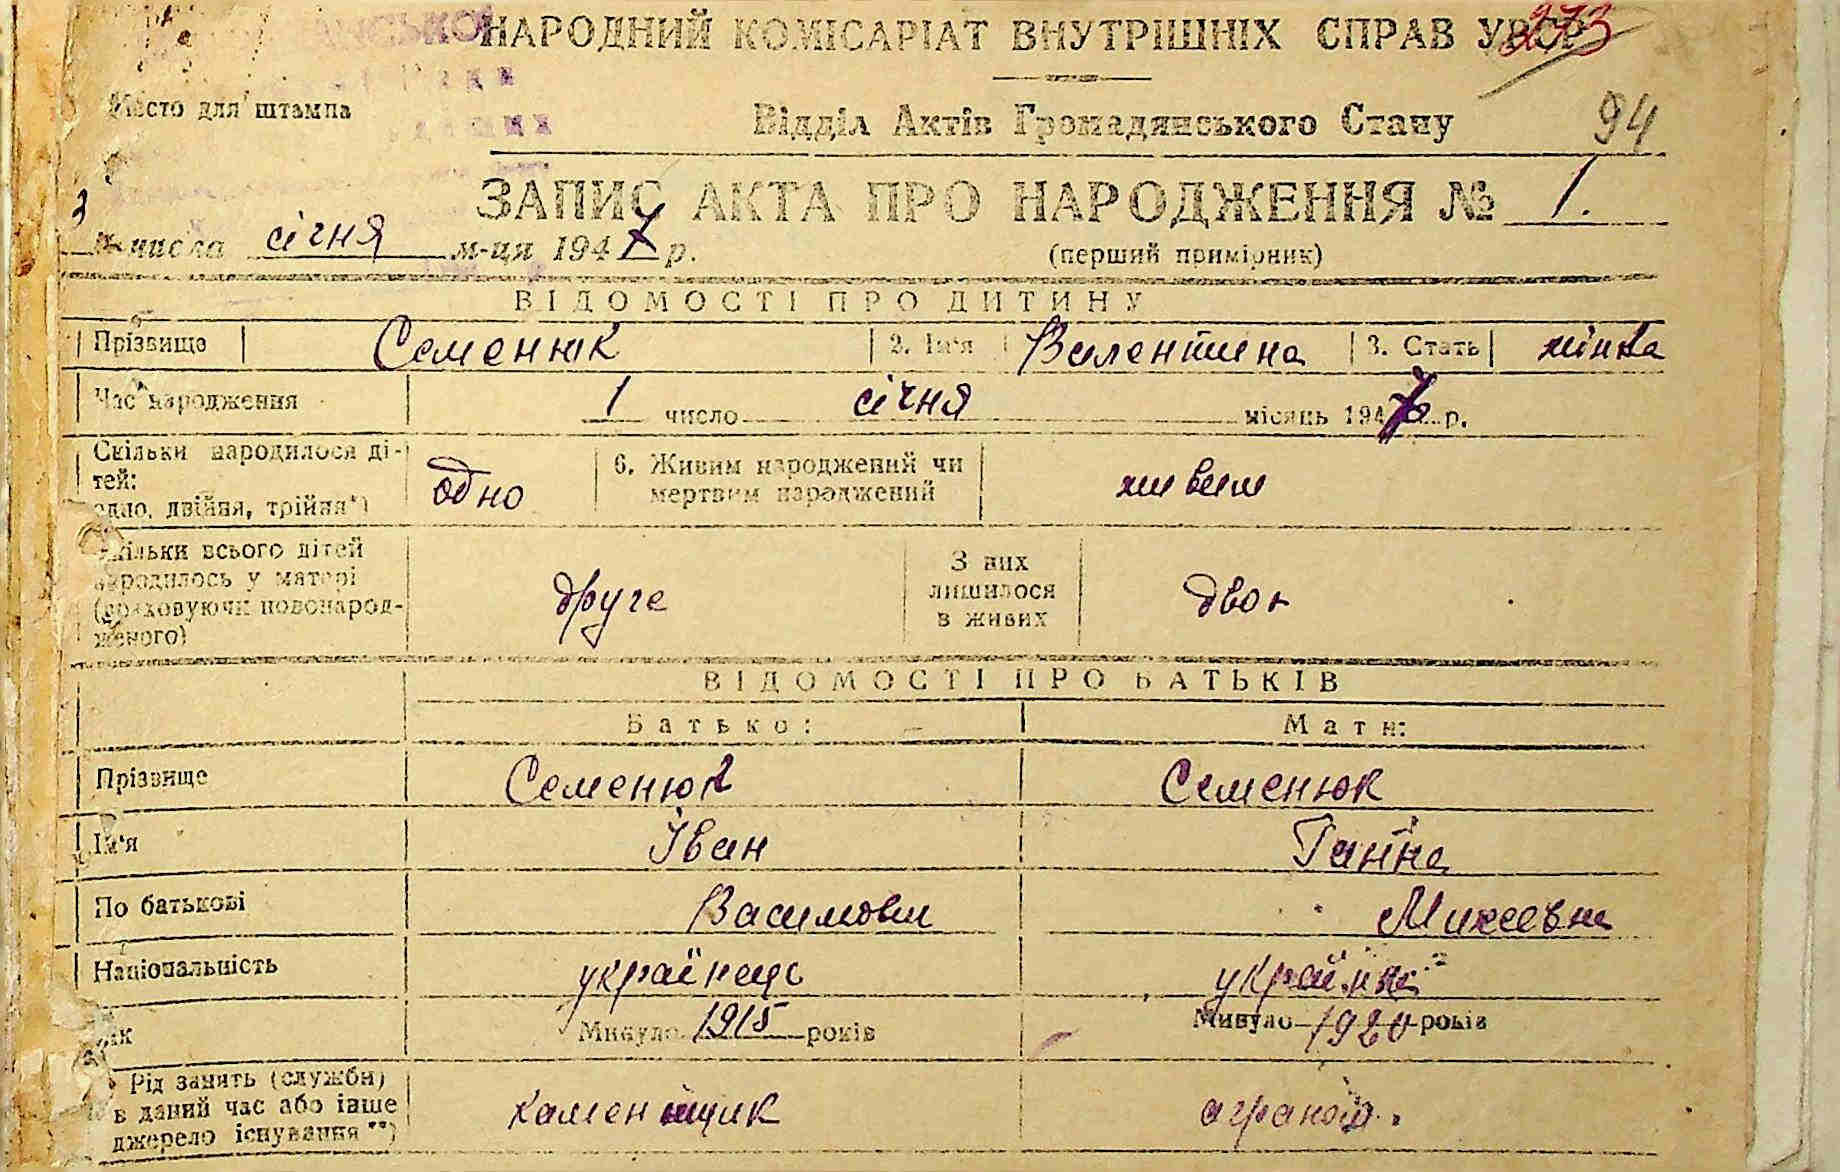 НАРОДНИЙ КОМІСАРІАТ ВНУТРІШНІХ СПРАВ УРСР 273
Место для штампа
Відділ Актів Громадянського Стану 94
ЗАПИС АКТА ПРО НАРОДЖЕННЯ № 1.
3 числа січня м-ця 1947 р.
(перший примірник)
ВІДОМОСТІ ПРО ДИТИНУ
Прізвище Семенюк 2. Ім'я Валентина 3. Стать жінка
Час народження 1 число січня місяць 1947 р.
Скільки народилося ді-
тей:
одно, двійня, трійня*)
одно
6. Живим народжений чи
мертвим народжений
живим
Скільки всього дітей
народилось у матері
(враховуючи новонарод-
женого)
друге
З них
лишилося
в живих
двоє
ВІДОМОСТІ ПРО БАТЬКІВ
Батько: Мати:
Прізвище Семенюк Семенюк
Ім'я Іван Ганна
По батькові
Національність українець українка
Минуло 1915 років Минуло 1920 років
Рід занять (служби)
в даний час або інше
джерело існування **)
каменщик